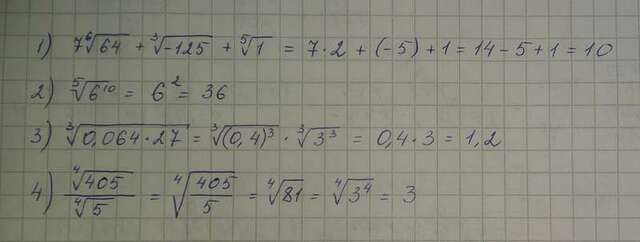 1) 7⁶√64 + ³√-125 + ⁵√1 = 7·2 + (-5) + 1 = 14 - 5 + 1 = 10
2) ⁵√6¹⁰ = 6² = 36
3) ³√0,064·27 = ³√(0,4)³ · ³√3³ = 0,4·3 = 1,2
4) ⁴√405 / ⁴√5 = ⁴√405/5 = ⁴√81 = ⁴√3⁴ = 3